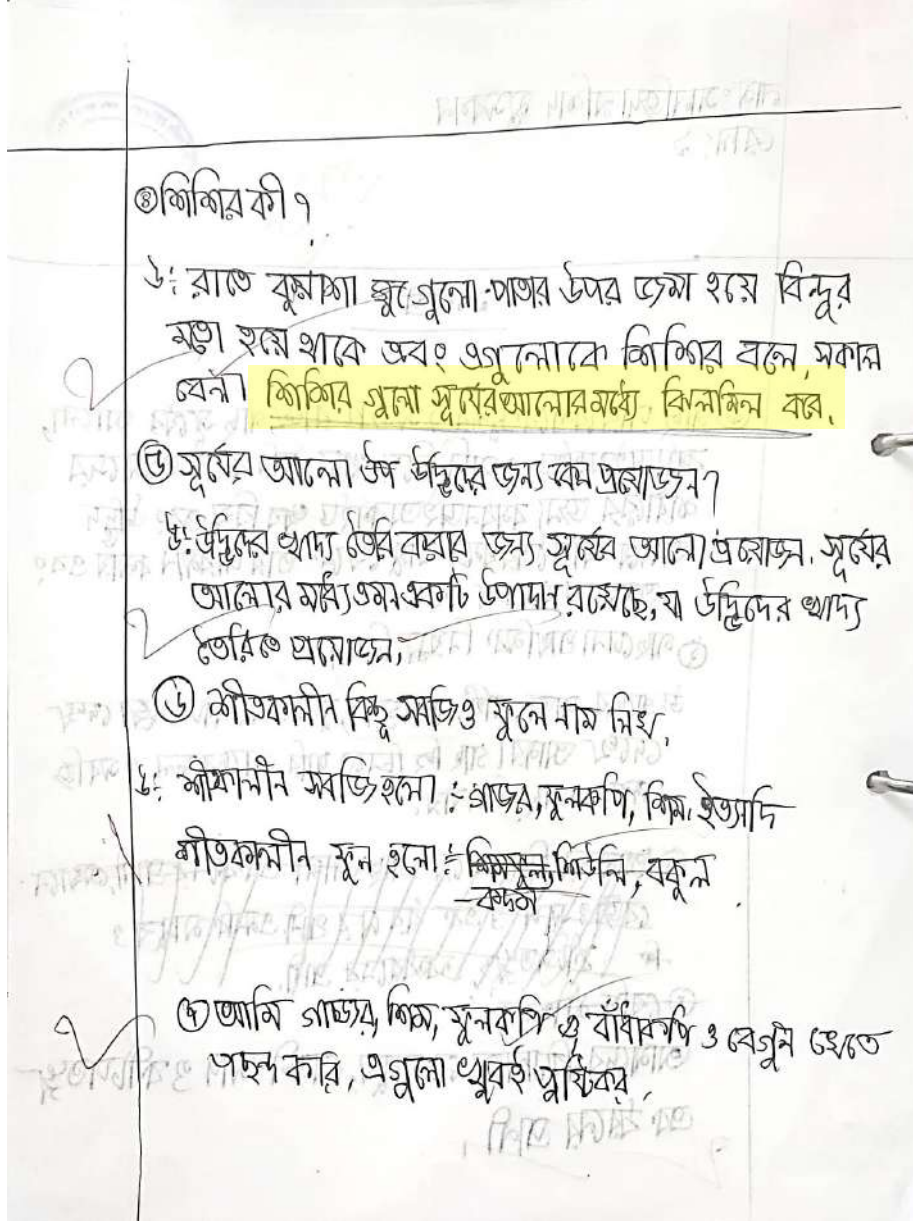 ৪ শিশির কী?
উ: রাতে কুয়াশা গুলো পাতার উপর জমা হয়ে বিন্দুর
মতো হয়ে থাকে এবং এগুলোকে শিশির বলে, সকাল
বেলা শিশির গুলো সূর্যের আলোর মধ্যে ঝিলমিল করে,
৫ সূর্যের আলো উপ উদ্ভিদের জন্য কেন প্রয়োজন?
উ: উদ্ভিদের খাদ্য তৈরি করার জন্য সূর্যের আলো প্রয়োজন, সূর্যের
আলোর মধ্যে এমন একটি উপাদান রয়েছে, যা উদ্ভিদের খাদ্য
তৈরিতে প্রয়োজন,
৬ শীতকালীন কিছু সবজি ও ফুলে নাম লিখ,
উ: শীকালীন সবজি হলো: গাজর, ফুলকপি, শিম, ইত্যাদি
শীতকালীন ফুল হলো: শিমফুল, শিউলি, বকুল
কদম
৭ আমি গাজর, শিম, ফুলকপি ও বাঁধাকপি ও বেগুন খেতে
পছন্দ করি, এগুলো খুবই পুষ্টিকর,